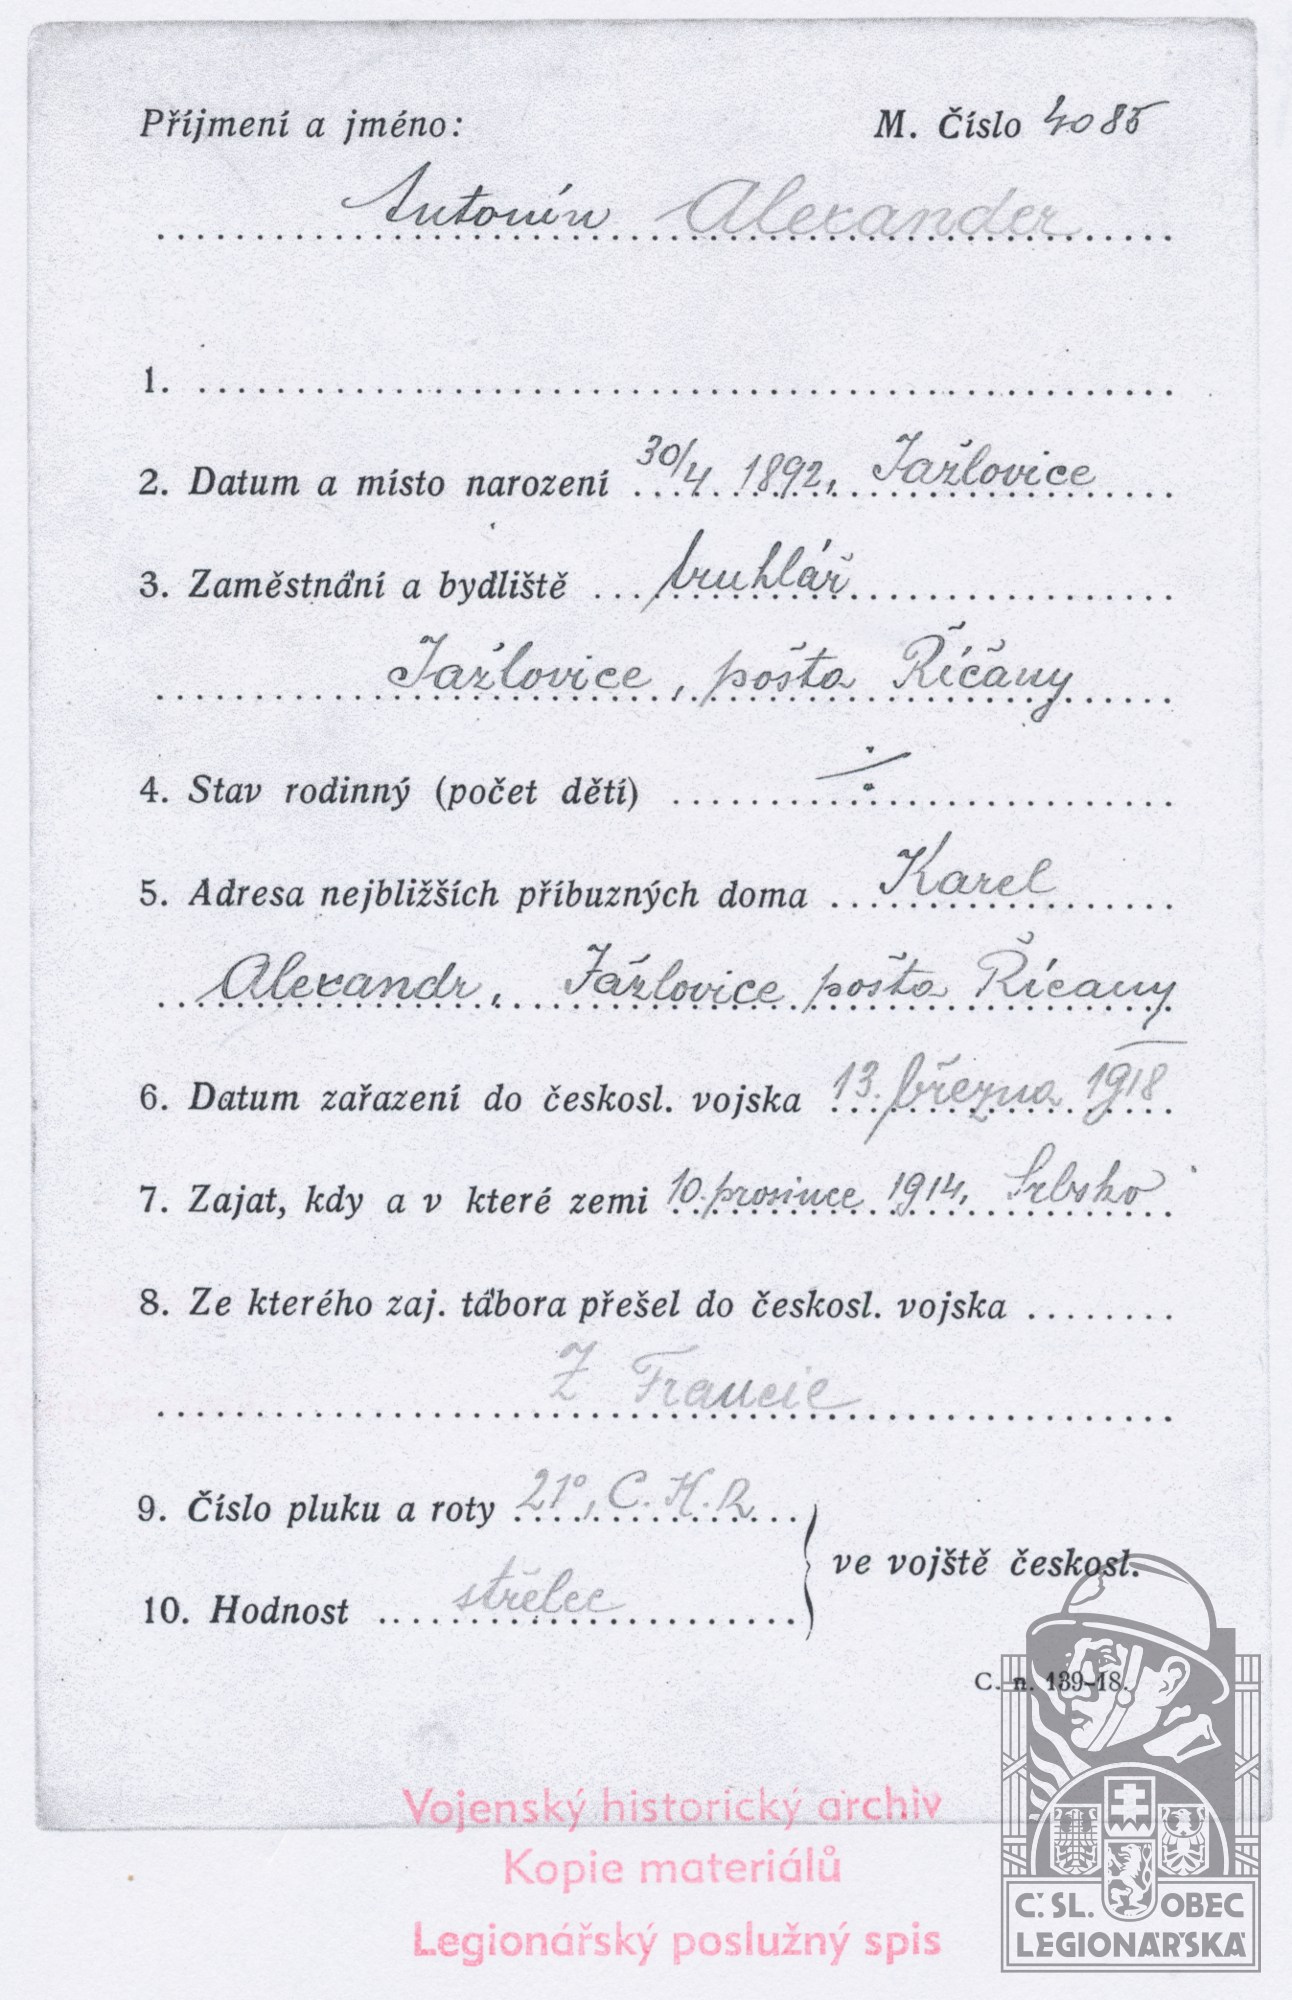 Příjmení a jméno: M. Číslo 4085
Antonín Alexander
1.
2. Datum a místo narození 30/4 1892, Jažlovice
3. Zaměstnání a bydliště truhlář
Jažlovice, pošta Říčany
4. Stav rodinný (počet dětí) ÷
5. Adresa nejbližších příbuzných doma Karel
Alexandr, Jážlovice pošta Řícany
6. Datum zařazení do českosl. vojska 13. března 1918
7. Zajat, kdy a v které zemi 10. prosince 1914, Srbsko
8. Ze kterého zaj. tábora přešel do českosl. vojska
Z Francie
9. Číslo pluku a roty 21°, C. H. R.
10. Hodnost střelec
ve vojště českosl.
C. n. 139-18.
Vojenský historický archiv
Kopie materiálů
Legionářský poslužný spis
Č. SL. OBEC
LEGIONÁŘSKÁ